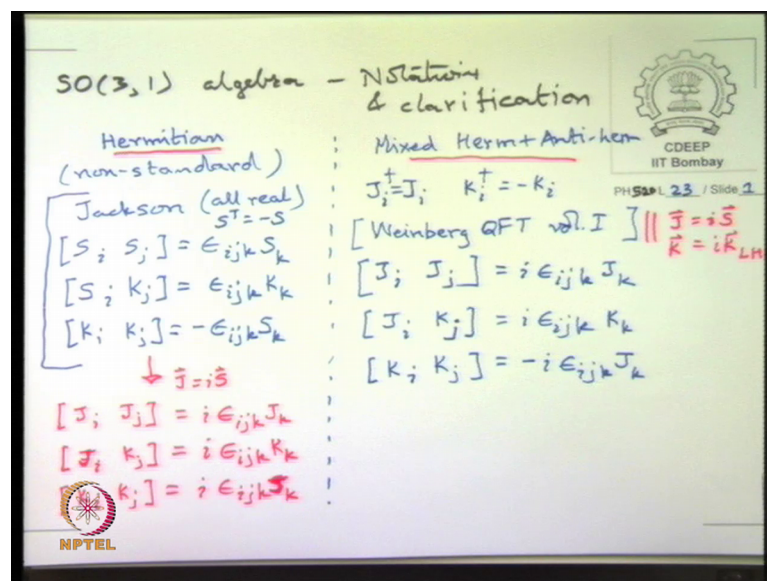 SO(3,1) algebra - Notations
& clarification
CDEEP
IIT Bombay
PH520 L 23 / Slide 1
Hermitian
(non-standard)
Jackson (all real)
S^T = -S
[S_i S_j] = ε_ijk S_k
[S_i K_j] = ε_ijk K_k
[K_i K_j] = -ε_ijk S_k
↓ J⃗ = iS⃗
[J_i J_j] = i ε_ijk J_k
[J_i K_j] = i ε_ijk K_k
K_j] = i ε_ijk J_k
Mixed Herm + Anti-herm
J_i^† = J_i K_i^† = -K_i
[Weinberg QFT vol. I] || J⃗ = iS⃗
K⃗ = iK⃗_LH
[J_i J_j] = i ε_ijk J_k
[J_i K_j] = i ε_ijk K_k
[K_i K_j] = -i ε_ijk J_k
NPTEL